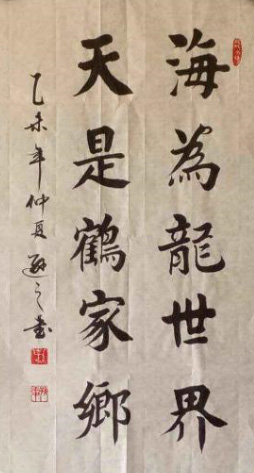 海為龍世界
天是鶴家鄉
乙未年仲夏遜之書